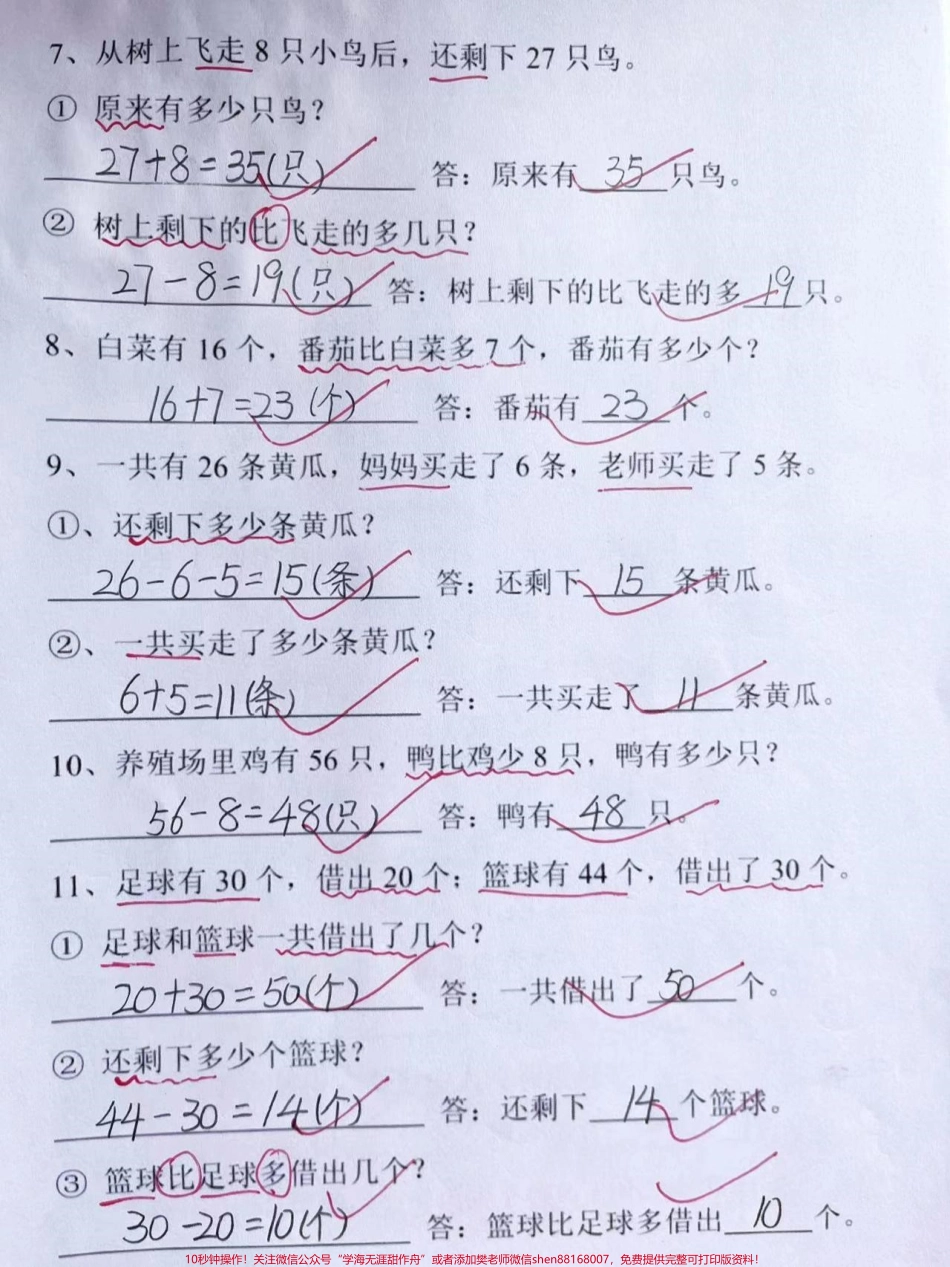 7、从树上飞走 8 只小鸟后，还剩下 27 只鸟。
① 原来有多少只鸟？
27+8=35(只) 答：原来有 35 只鸟。
② 树上剩下的比飞走的多几只？
27-8=19(只) 答：树上剩下的比飞走的多 19 只。
8、白菜有 16 个，番茄比白菜多 7 个，番茄有多少个？
16+7=23(个) 答：番茄有 23 个。
9、一共有 26 条黄瓜，妈妈买走了 6 条，老师买走了 5 条。
①、还剩下多少条黄瓜？
26-6-5=15(条) 答：还剩下 15 条黄瓜。
②、一共买走了多少条黄瓜？
6+5=11(条) 答：一共买走了 11 条黄瓜。
10、养殖场里鸡有 56 只，鸭比鸡少 8 只，鸭有多少只？
56-8=48(只) 答：鸭有 48 只。
11、足球有 30 个，借出 20 个；篮球有 44 个，借出了 30 个。
① 足球和篮球一共借出了几个？
20+30=50(个) 答：一共借出了 50 个。
② 还剩下多少个篮球？
44-30=14(个) 答：还剩下 14 个篮球。
③ 篮球比足球多借出几个？
30-20=10(个) 答：篮球比足球多借出 10 个。
10秒钟操作！关注微信公众号“学海无涯甜作舟”或者添加樊老师微信shen88168007，免费提供完整可打印版资料！